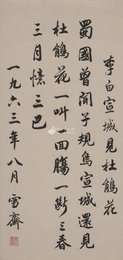 李白宣城見杜鵑花
蜀國曾聞子規鳥宣城還見
杜鵑花一叫一迴腸一斷三春
三月憶三巴
一九六三年八月雪齋